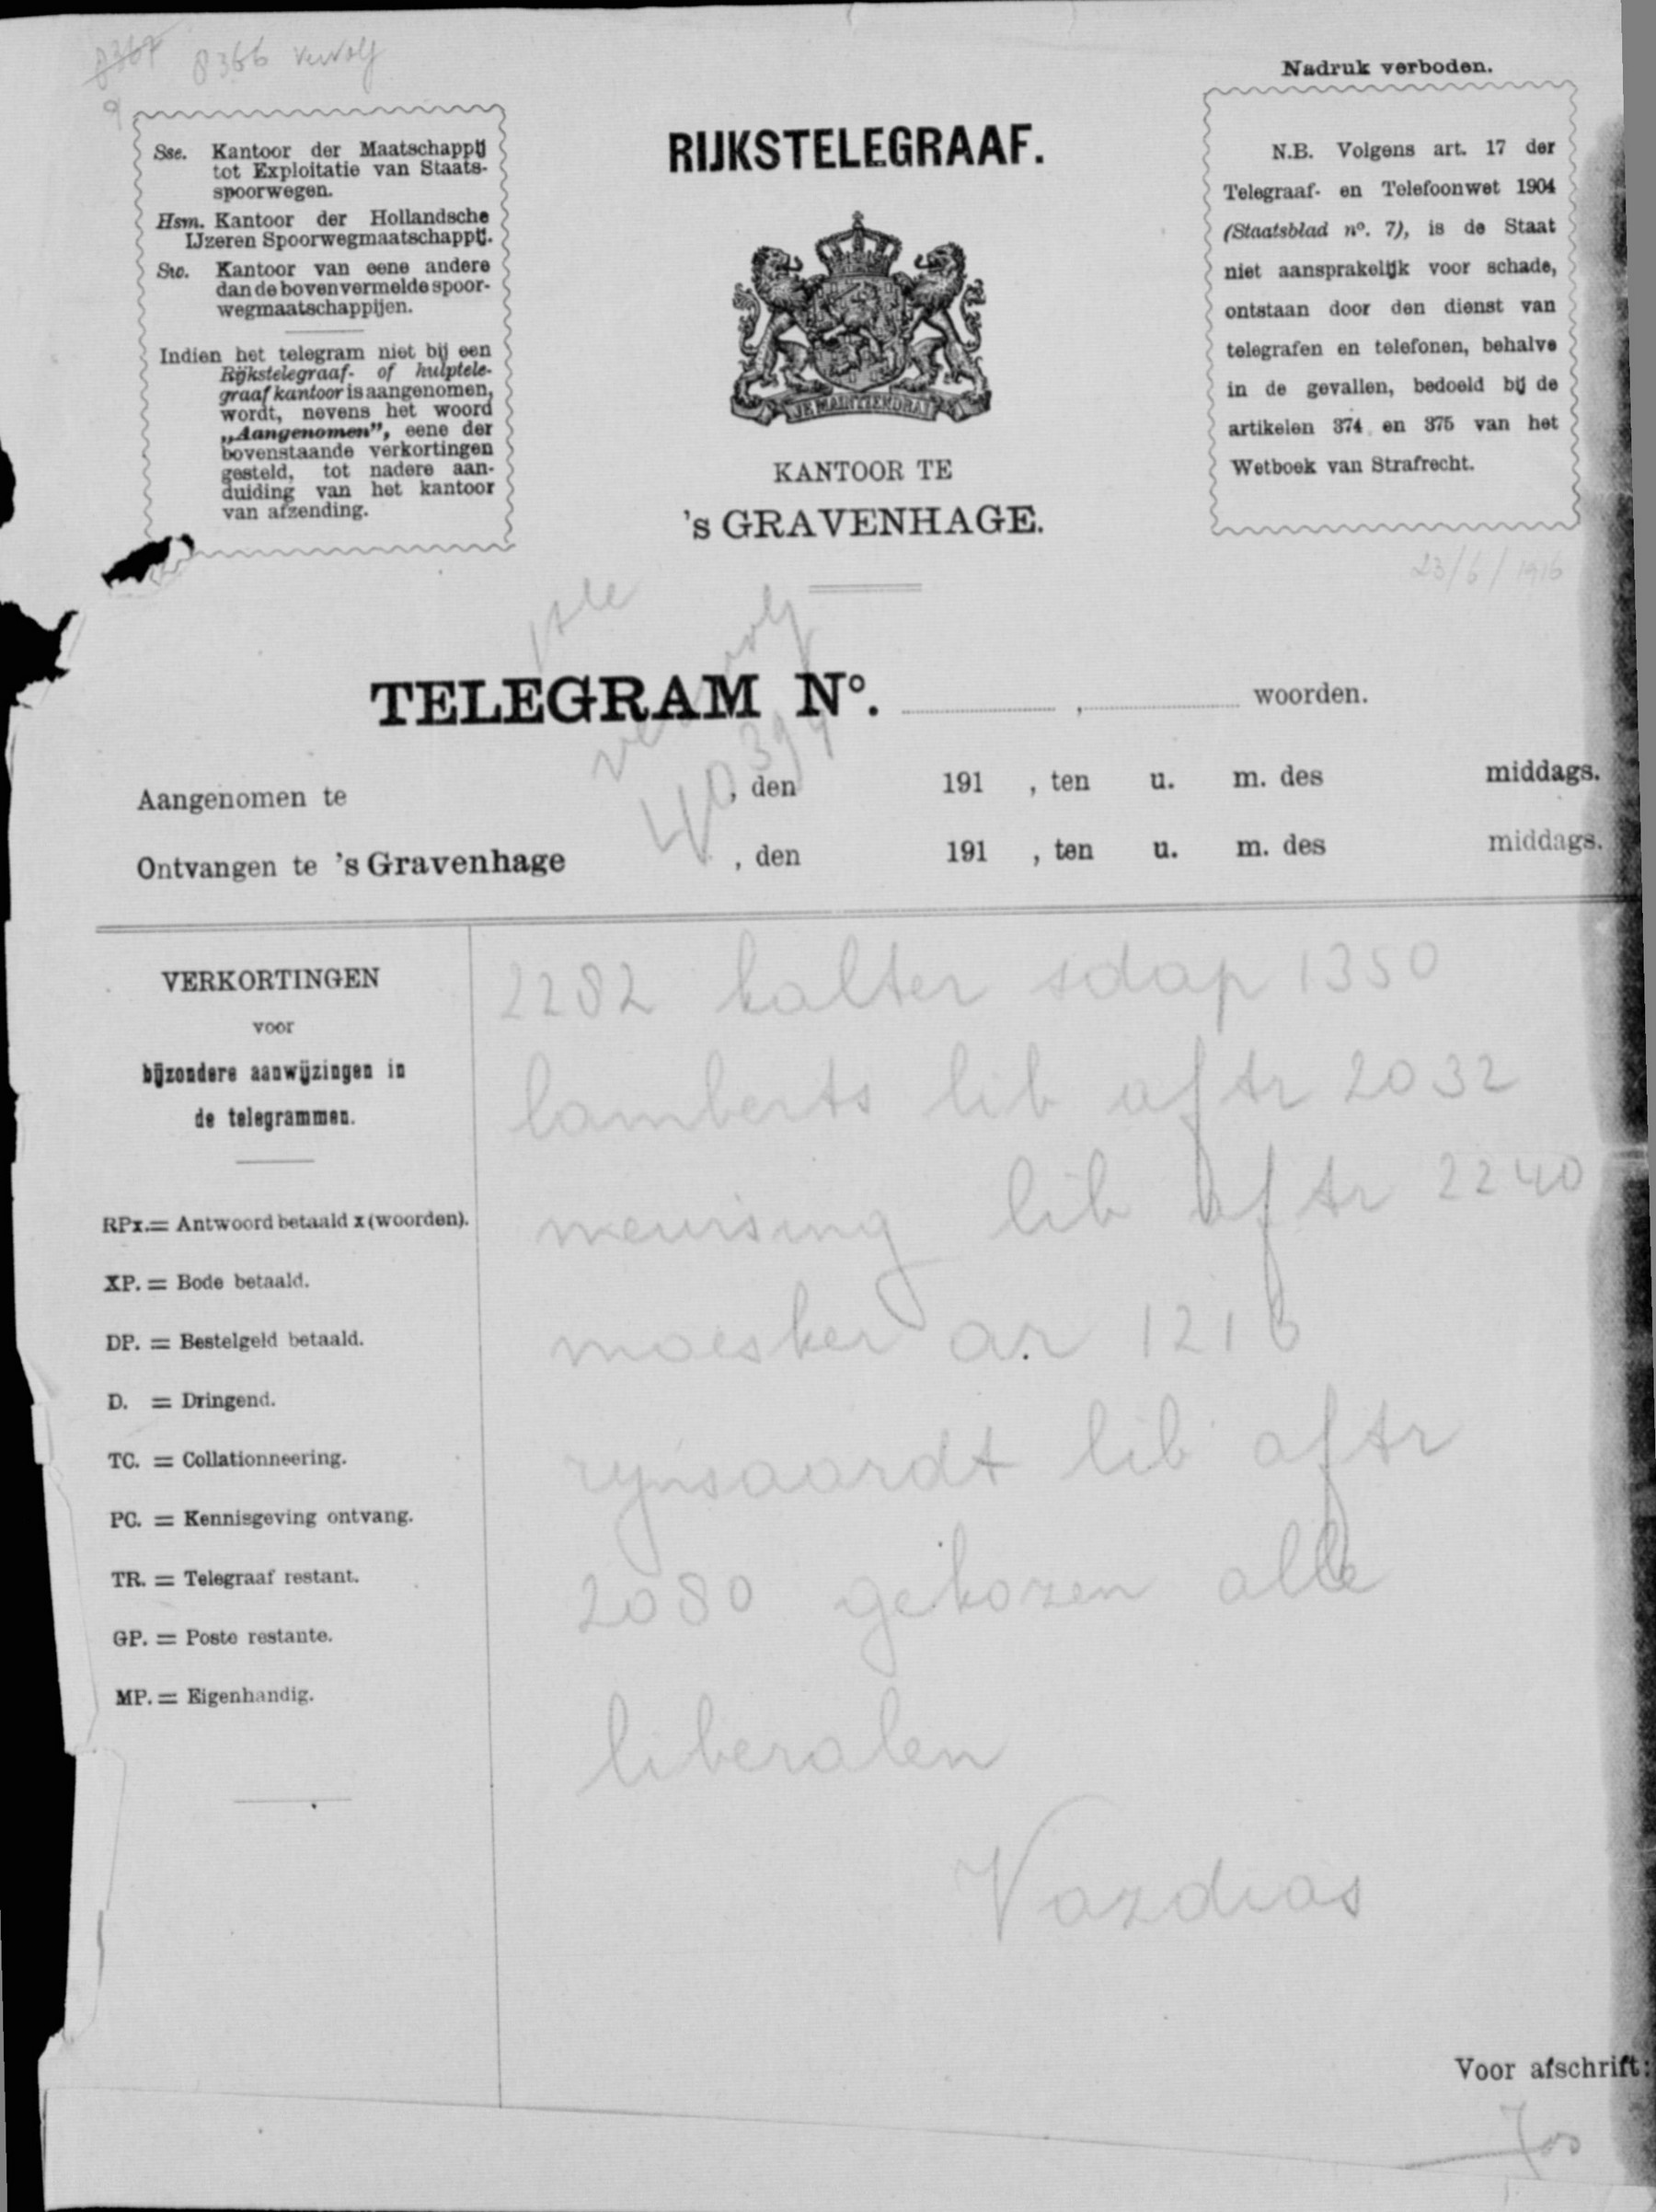 8367 8366 vervolg
9
Nadruk verboden.
Sse. Kantoor der Maatschappij
tot Exploitatie van Staats-
spoorwegen.
Hsm. Kantoor der Hollandsche
IJzeren Spoorwegmaatschappij.
Sw. Kantoor van eene andere
dan de bovenvermelde spoor-
wegmaatschappijen.
Indien het telegram niet bij een
Rijkstelegraaf- of hulptele-
graafkantoor is aangenomen,
wordt, nevens het woord
„Aangenomen”, eene der
bovenstaande verkortingen
gesteld, tot nadere aan-
duiding van het kantoor
van afzending.
RIJKSTELEGRAAF.
JE MAINTIENDRAI
KANTOOR TE
's GRAVENHAGE.
N.B. Volgens art. 17 der
Telegraaf- en Telefoonwet 1904
(Staatsblad n°. 7), is de Staat
niet aansprakelijk voor schade,
ontstaan door den dienst van
telegrafen en telefonen, behalve
in de gevallen, bedoeld bij de
artikelen 374 en 375 van het
Wetboek van Strafrecht.
23/6/1916
1ste
vervolg
40394
TELEGRAM N°. , woorden.
Aangenomen te , den 191 , ten u. m. des middags.
Ontvangen te 's Gravenhage , den 191 , ten u. m. des middags.
VERKORTINGEN
voor
bijzondere aanwijzingen in
de telegrammen.
RPx.= Antwoord betaald x (woorden).
XP. = Bode betaald.
DP. = Bestelgeld betaald.
D. = Dringend.
TC. = Collationneering.
PC. = Kennisgeving ontvang.
TR. = Telegraaf restant.
GP. = Poste restante.
MP. = Eigenhandig.
2282 kalter sdap 1350
lamberts lib aftr 2032
meursing lib aftr 2240
moesker ar 1216
rynsaardt lib aftr
2080 gekozen alle
liberalen
Vazdias
Voor afschrift: